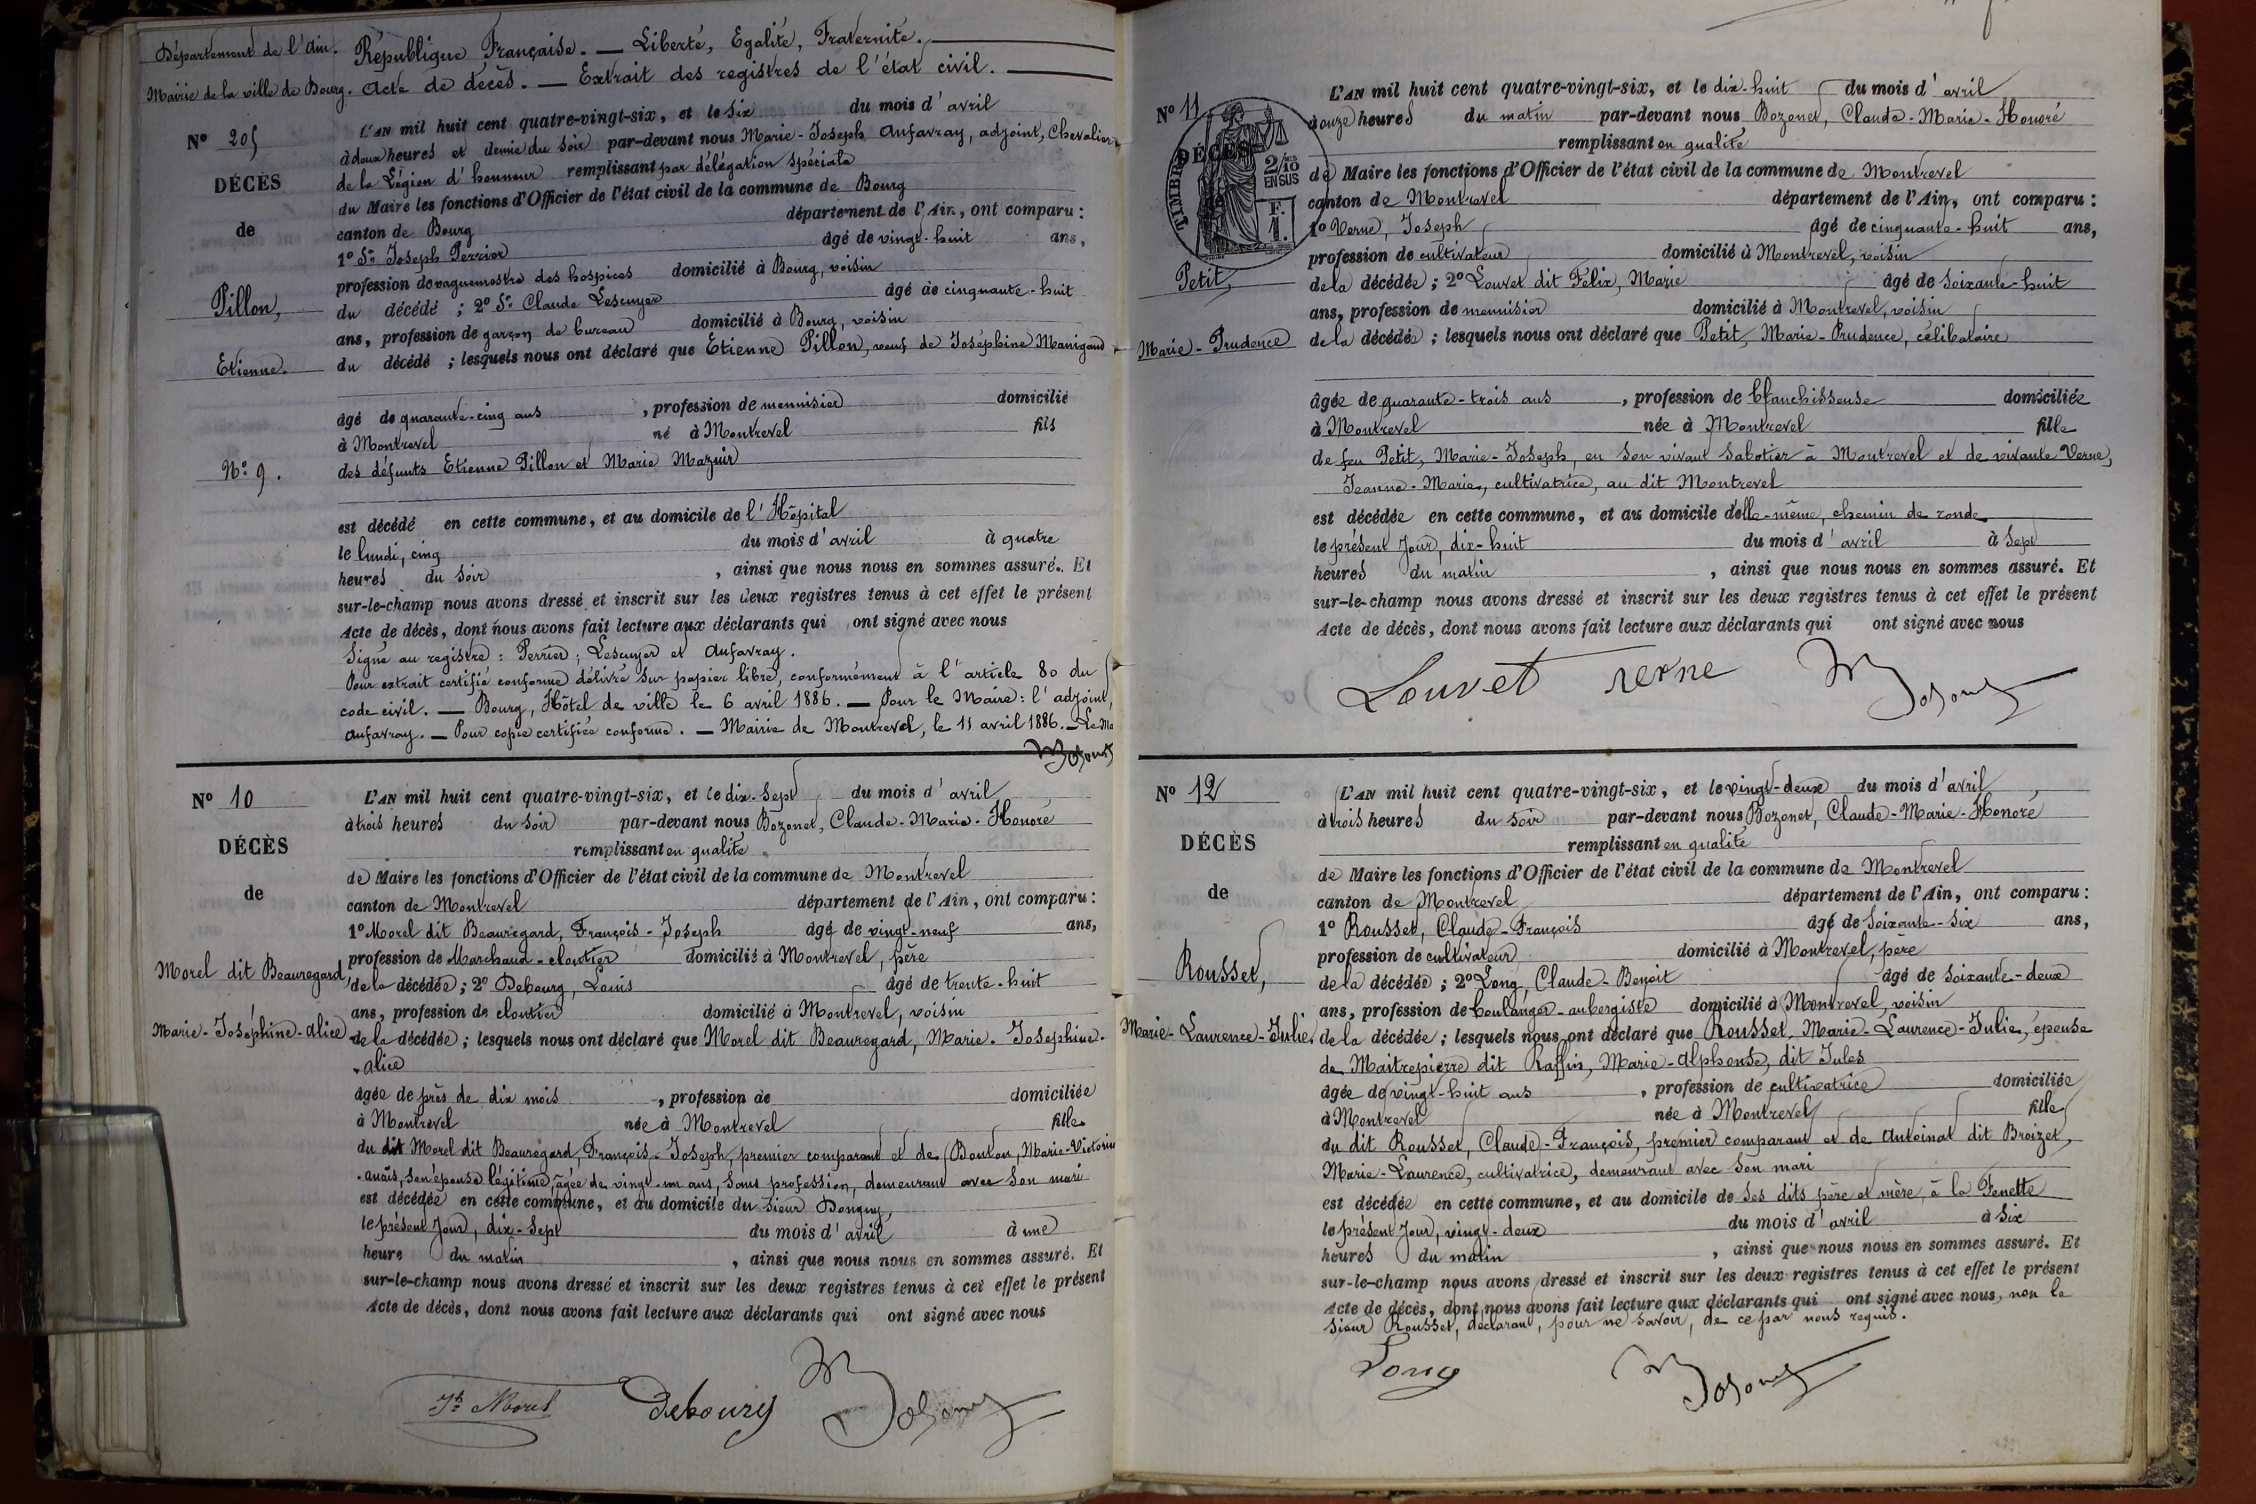 Département de l'Ain. République Française. — Liberté, Egalité, Fraternité.
Mairie de la ville de Bourg. Acte de décès. — Extrait des registres de l'état civil.
N° 205
DÉCÈS
de
Pillon,
Etienne.
N° 9.
L'AN mil huit cent quatre-vingt-six, et le six du mois d'avril
à deux heures et demie du soir par-devant nous Marie-Joseph Aufavray, adjoint, Chevalier
de la Légion d'honneur remplissant par délégation spéciale
du Maire les fonctions d'Officier de l'état civil de la commune de Bourg
canton de Bourg département de l'Ain, ont comparu :
1° Sr. Joseph Perrier âgé de vingt-huit ans,
profession de vaguemestre des hospices domicilié à Bourg, voisin
du décédé ; 2° Sr. Claude Lescuyer âgé de cinquante-huit
ans, profession de garçon de bureau domicilié à Bourg, voisin
du décédé ; lesquels nous ont déclaré que Etienne Pillon, veuf de Joséphine Manigand
âgé de quarante-cinq ans , profession de menuisier domicilié
à Montrevel né à Montrevel fils
des défunts Etienne Pillon et Marie Mazuir
est décédé en cette commune, et au domicile de l'Hôpital
le lundi, cinq du mois d'avril à quatre
heures du soir , ainsi que nous nous en sommes assuré. Et
sur-le-champ nous avons dressé et inscrit sur les deux registres tenus à cet effet le présent
Acte de décès, dont nous avons fait lecture aux déclarants qui ont signé avec nous
Signé au registre : Perrier ; Lescuyer et Aufavray.
Pour extrait certifié conforme délivré sur papier libre, conformément à l'article 80 du
code civil. — Bourg, Hôtel de ville le 6 avril 1886. — Pour le Maire : l'adjoint,
Aufavray. — Pour copie certifiée conforme. — Mairie de Montrevel, le 11 avril 1886. — Le Ma
Bozonet
N° 10
DÉCÈS
de
Morel dit Beauregard,
Marie-Joséphine-Alice
L'AN mil huit cent quatre-vingt-six, et le dix-sept du mois d'avril
à trois heures du soir par-devant nous Bozonet, Claude-Marie-Honoré
remplissant en qualité
de Maire les fonctions d'Officier de l'état civil de la commune de Montrevel
canton de Montrevel département de l'Ain, ont comparu :
1° Morel dit Beauregard, François-Joseph âgé de vingt-neuf ans,
profession de Marchand-cloutier domicilié à Montrevel, père
de la décédée ; 2° Debourg, Louis âgé de trente-huit
ans, profession de cloutier domicilié à Montrevel, voisin
de la décédée ; lesquels nous ont déclaré que Morel dit Beauregard, Marie-Josephine-
-Alice
âgée de près de dix mois , profession de domiciliée
à Montrevel née à Montrevel fille
du dit Morel dit Beauregard, François-Joseph, premier comparant et de Bouton, Marie-Victorine
-anaïs, son épouse légitime, âgée de vingt-un ans, sans profession, demeurant avec son mari
est décédée en cette commune, et au domicile du sieur Donguy,
le présent jour, dix-sept du mois d'avril à une
heure du matin , ainsi que nous nous en sommes assuré. Et
sur-le-champ nous avons dressé et inscrit sur les deux registres tenus à cet effet le présent
Acte de décès, dont nous avons fait lecture aux déclarants qui ont signé avec nous
Jh Morel Debourg Bozonet
N° 11
DÉCÈS
TIMBRE
2/10
EN SUS
F.
1.
Petit,
Marie-Prudence
L'AN mil huit cent quatre-vingt-six, et le dix-huit du mois d'avril
à onze heures du matin par-devant nous Bozonet, Claude-Marie-Honoré
remplissant en qualité
de Maire les fonctions d'Officier de l'état civil de la commune de Montrevel
canton de Montrevel département de l'Ain, ont comparu :
1° Verne, Joseph âgé de cinquante-huit ans,
profession de cultivateur domicilié à Montrevel, voisin
de la décédée ; 2° Louvet dit Félix, Marie âgé de soixante-huit
ans, profession de menuisier domicilié à Montrevel, voisin
de la décédée ; lesquels nous ont déclaré que Petit, Marie-Prudence, célibataire
âgée de quarante-trois ans , profession de blanchisseuse domiciliée
à Montrevel née à Montrevel fille
de feu Petit, Marie-Joseph, en son vivant sabotier à Montrevel et de vivante Verne,
Jeanne-Marie, cultivatrice, au dit Montrevel
est décédée en cette commune, et au domicile d'elle-même, chemin de ronde
le présent jour, dix-huit du mois d'avril à sept
heures du matin , ainsi que nous nous en sommes assuré. Et
sur-le-champ nous avons dressé et inscrit sur les deux registres tenus à cet effet le présent
Acte de décès, dont nous avons fait lecture aux déclarants qui ont signé avec nous
Louvet verne Bozonet
N° 12
DÉCÈS
de
Rousset,
Marie-Laurence-Julie,
L'AN mil huit cent quatre-vingt-six, et le vingt-deux du mois d'avril
à trois heures du soir par-devant nous Bozonet, Claude-Marie-Honoré
remplissant en qualité
de Maire les fonctions d'Officier de l'état civil de la commune de Montrevel
canton de Montrevel département de l'Ain, ont comparu :
1° Rousset, Claude-François âgé de soixante-six ans,
profession de cultivateur domicilié à Montrevel, père
de la décédée ; 2° Long, Claude-Benoit âgé de soixante-deux
ans, profession de boulanger-aubergiste domicilié à Montrevel, voisin
de la décédée ; lesquels nous ont déclaré que Rousset, Marie-Laurence-Julie, épouse
de Maitrepierre dit Raffin, Marie-Alphonse, dit Jules
âgée de vingt-huit ans , profession de cultivatrice domiciliée
à Montrevel née à Montrevel fille
du dit Rousset, Claude-François, premier comparant et de Antoinat dit Broizet,
Marie-Laurence, cultivatrice, demeurant avec son mari
est décédée en cette commune, et au domicile de ses dits père et mère, à la Fenette
le présent jour, vingt-deux du mois d'avril à six
heures du matin , ainsi que nous nous en sommes assuré. Et
sur-le-champ nous avons dressé et inscrit sur les deux registres tenus à cet effet le présent
Acte de décès, dont nous avons fait lecture aux déclarants qui ont signé avec nous, non le
sieur Rousset, déclarant, pour ne savoir, de ce par nous requis.
Long Bozonet